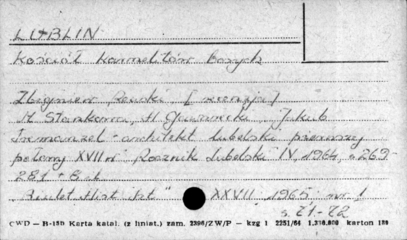 LUBLIN
Kościół Karmelitów Bosych
Zbigniew Rewski [recenzja]
H. Stankowa, H. Gawarecki, Jakub
- architekt lubelski pierwszej
połowy XVII w. Rocznik Lubelski IV, 1961, s. 269-
281 +
Biulet. Hist. Szt." XXVII 1965 nr. 1
s. 71-72
CWD — B-15b Karta katal. (z liniat.) zam. 2306/ZW/P — kzg 1 2251/64 1.210.000 karton